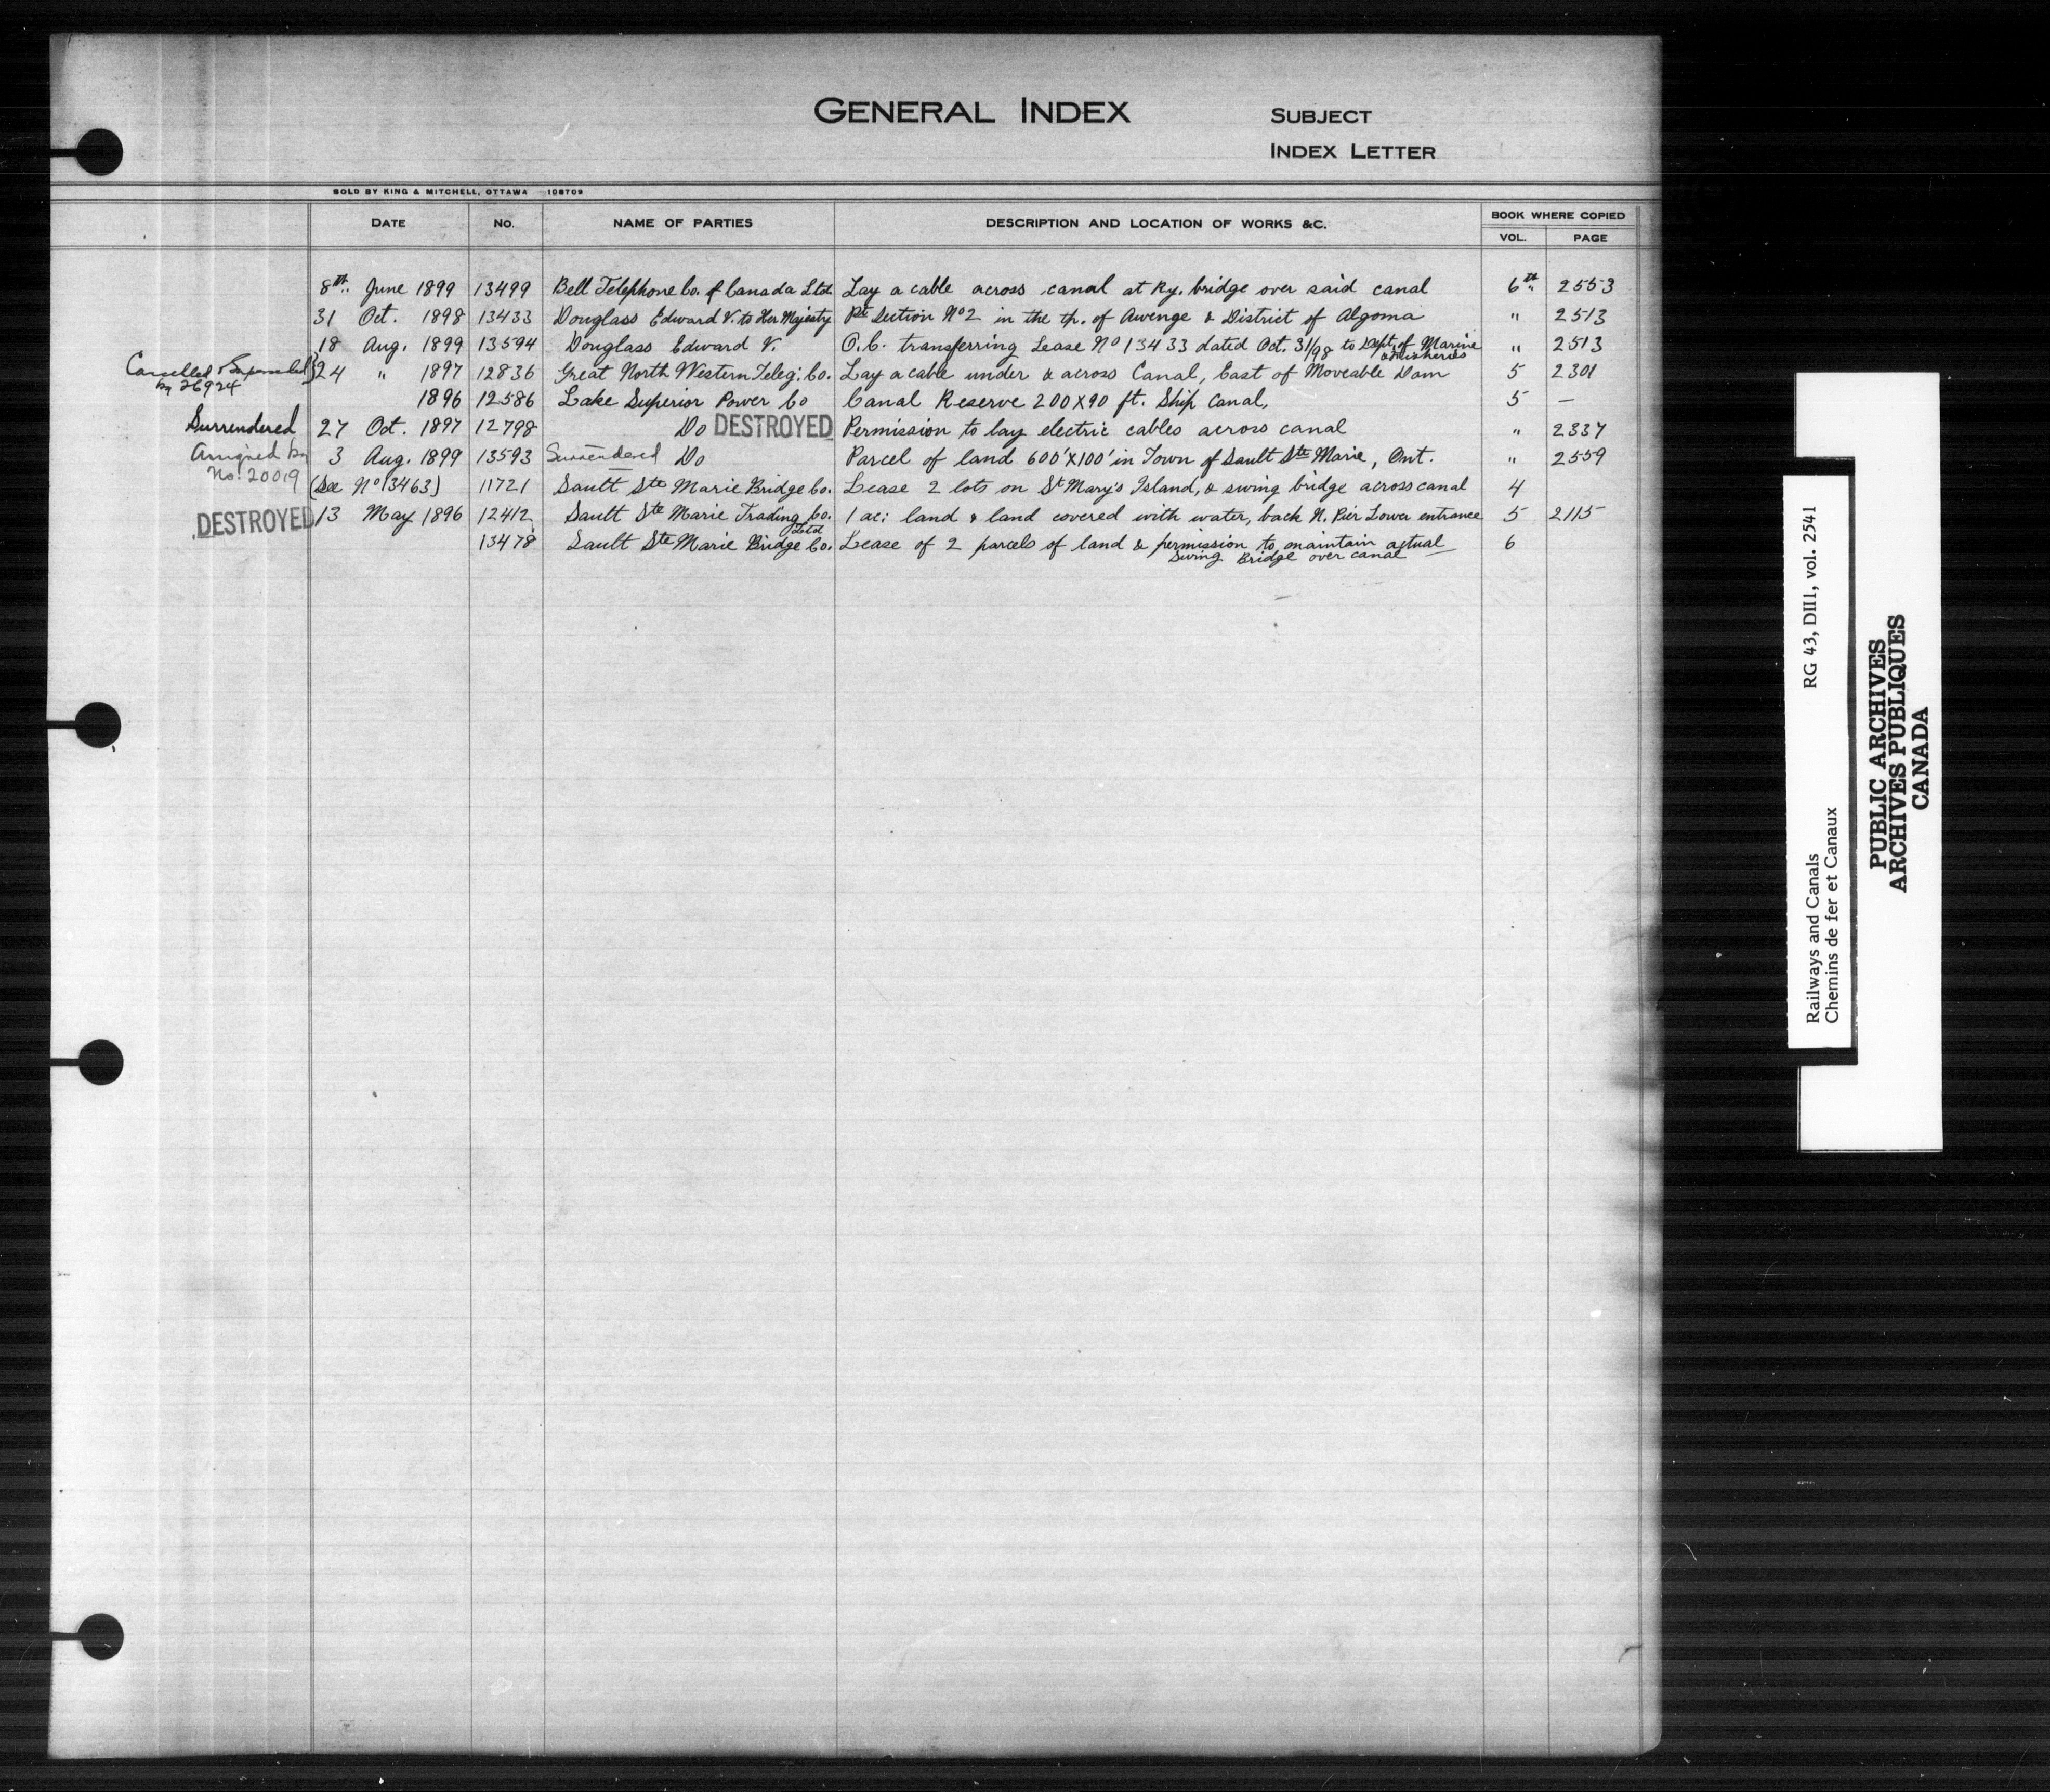 GENERAL INDEX
SUBJECT
INDEX LETTER
SOLD BY KING & MITCHELL, OTTAWA 108709
DATE No. NAME OF PARTIES DESCRIPTION AND LOCATION OF WORKS &C. BOOK WHERE COPIED
VOL. PAGE
8th June 1899 13499 Bell Telephone Co. of Canada Ltd Lay a cable across canal at Ry. bridge over said canal 6th 2553
31 Oct. 1898 13433 Douglass Edward V. to Her Majesty Pt Section No 2 in the tp. of Awenge & District of Algoma " 2513
18 Aug. 1899 13594 Douglass Edward V. O.C. transferring Lease No 13433 dated Oct. 31/98 to Dept. of Marine & Fisheries " 2513
Cancelled & Superseded by 26924 24 " 1897 12836 Great North Western Teleg. Co. Lay a cable under & across Canal, East of Moveable Dam 5 2301
1896 12586 Lake Superior Power Co Canal Reserve 200X90 ft. Ship Canal, 5 —
Surrendered 27 Oct. 1897 12798 Do DESTROYED Permission to lay electric cables across canal " 2337
Assigned by No. 20019 3 Aug. 1899 13593 Surrendered Do Parcel of land 600'X100' in Town of Sault Ste Marie, Ont. " 2559
(See No 13463) 11721 Sault Ste Marie Bridge Co. Lease 2 lots on St Mary's Island, & swing bridge across canal 4
DESTROYED 13 May 1896 12412 Sault Ste Marie Trading Co. Ltd 1 ac: land & land covered with water, back N. Pier Lower entrance 5 2115
13478 Sault Ste Marie Bridge Co. Lease of 2 parcels of land & permission to maintain actual 6
Swing Bridge over canal
RG 43, DII1, vol. 2541
Railways and Canals
Chemins de fer et Canaux
PUBLIC ARCHIVES
ARCHIVES PUBLIQUES
CANADA